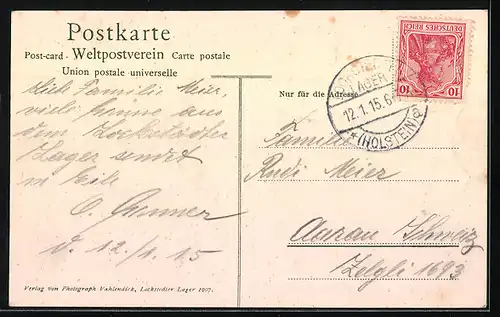 Postkarte
Post-card - Weltpostverein Carte postale
Union postale universelle
Nur für die Adresse
DEUTSCHES REICH
10 10
LAGER
12.1.15.6
*(HOLSTEIN)
Familie Meier,
viele aus
dem Lockstedter
Lager sendet
in Eile
O.
d. 12/1.15
Familie
Rudi Meier
Aarau Schweiz
Zelgli 1693
Verlag von Photograph Vahlendick, Lockstedter Lager 1907.